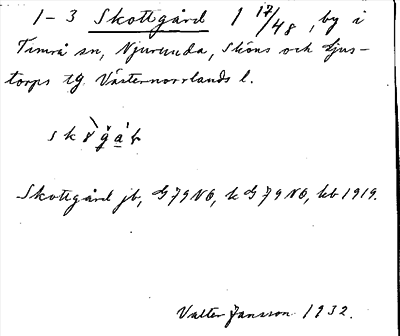 1-3 Skottgård 1 17/48, by i
Timrå sn, Njurunda, Sköns och Ljus-
torps tg. Västernorrlands l.
Skottgård jb, G79NO, k G79NO, kb 1919.
Valter Jansson 1932.